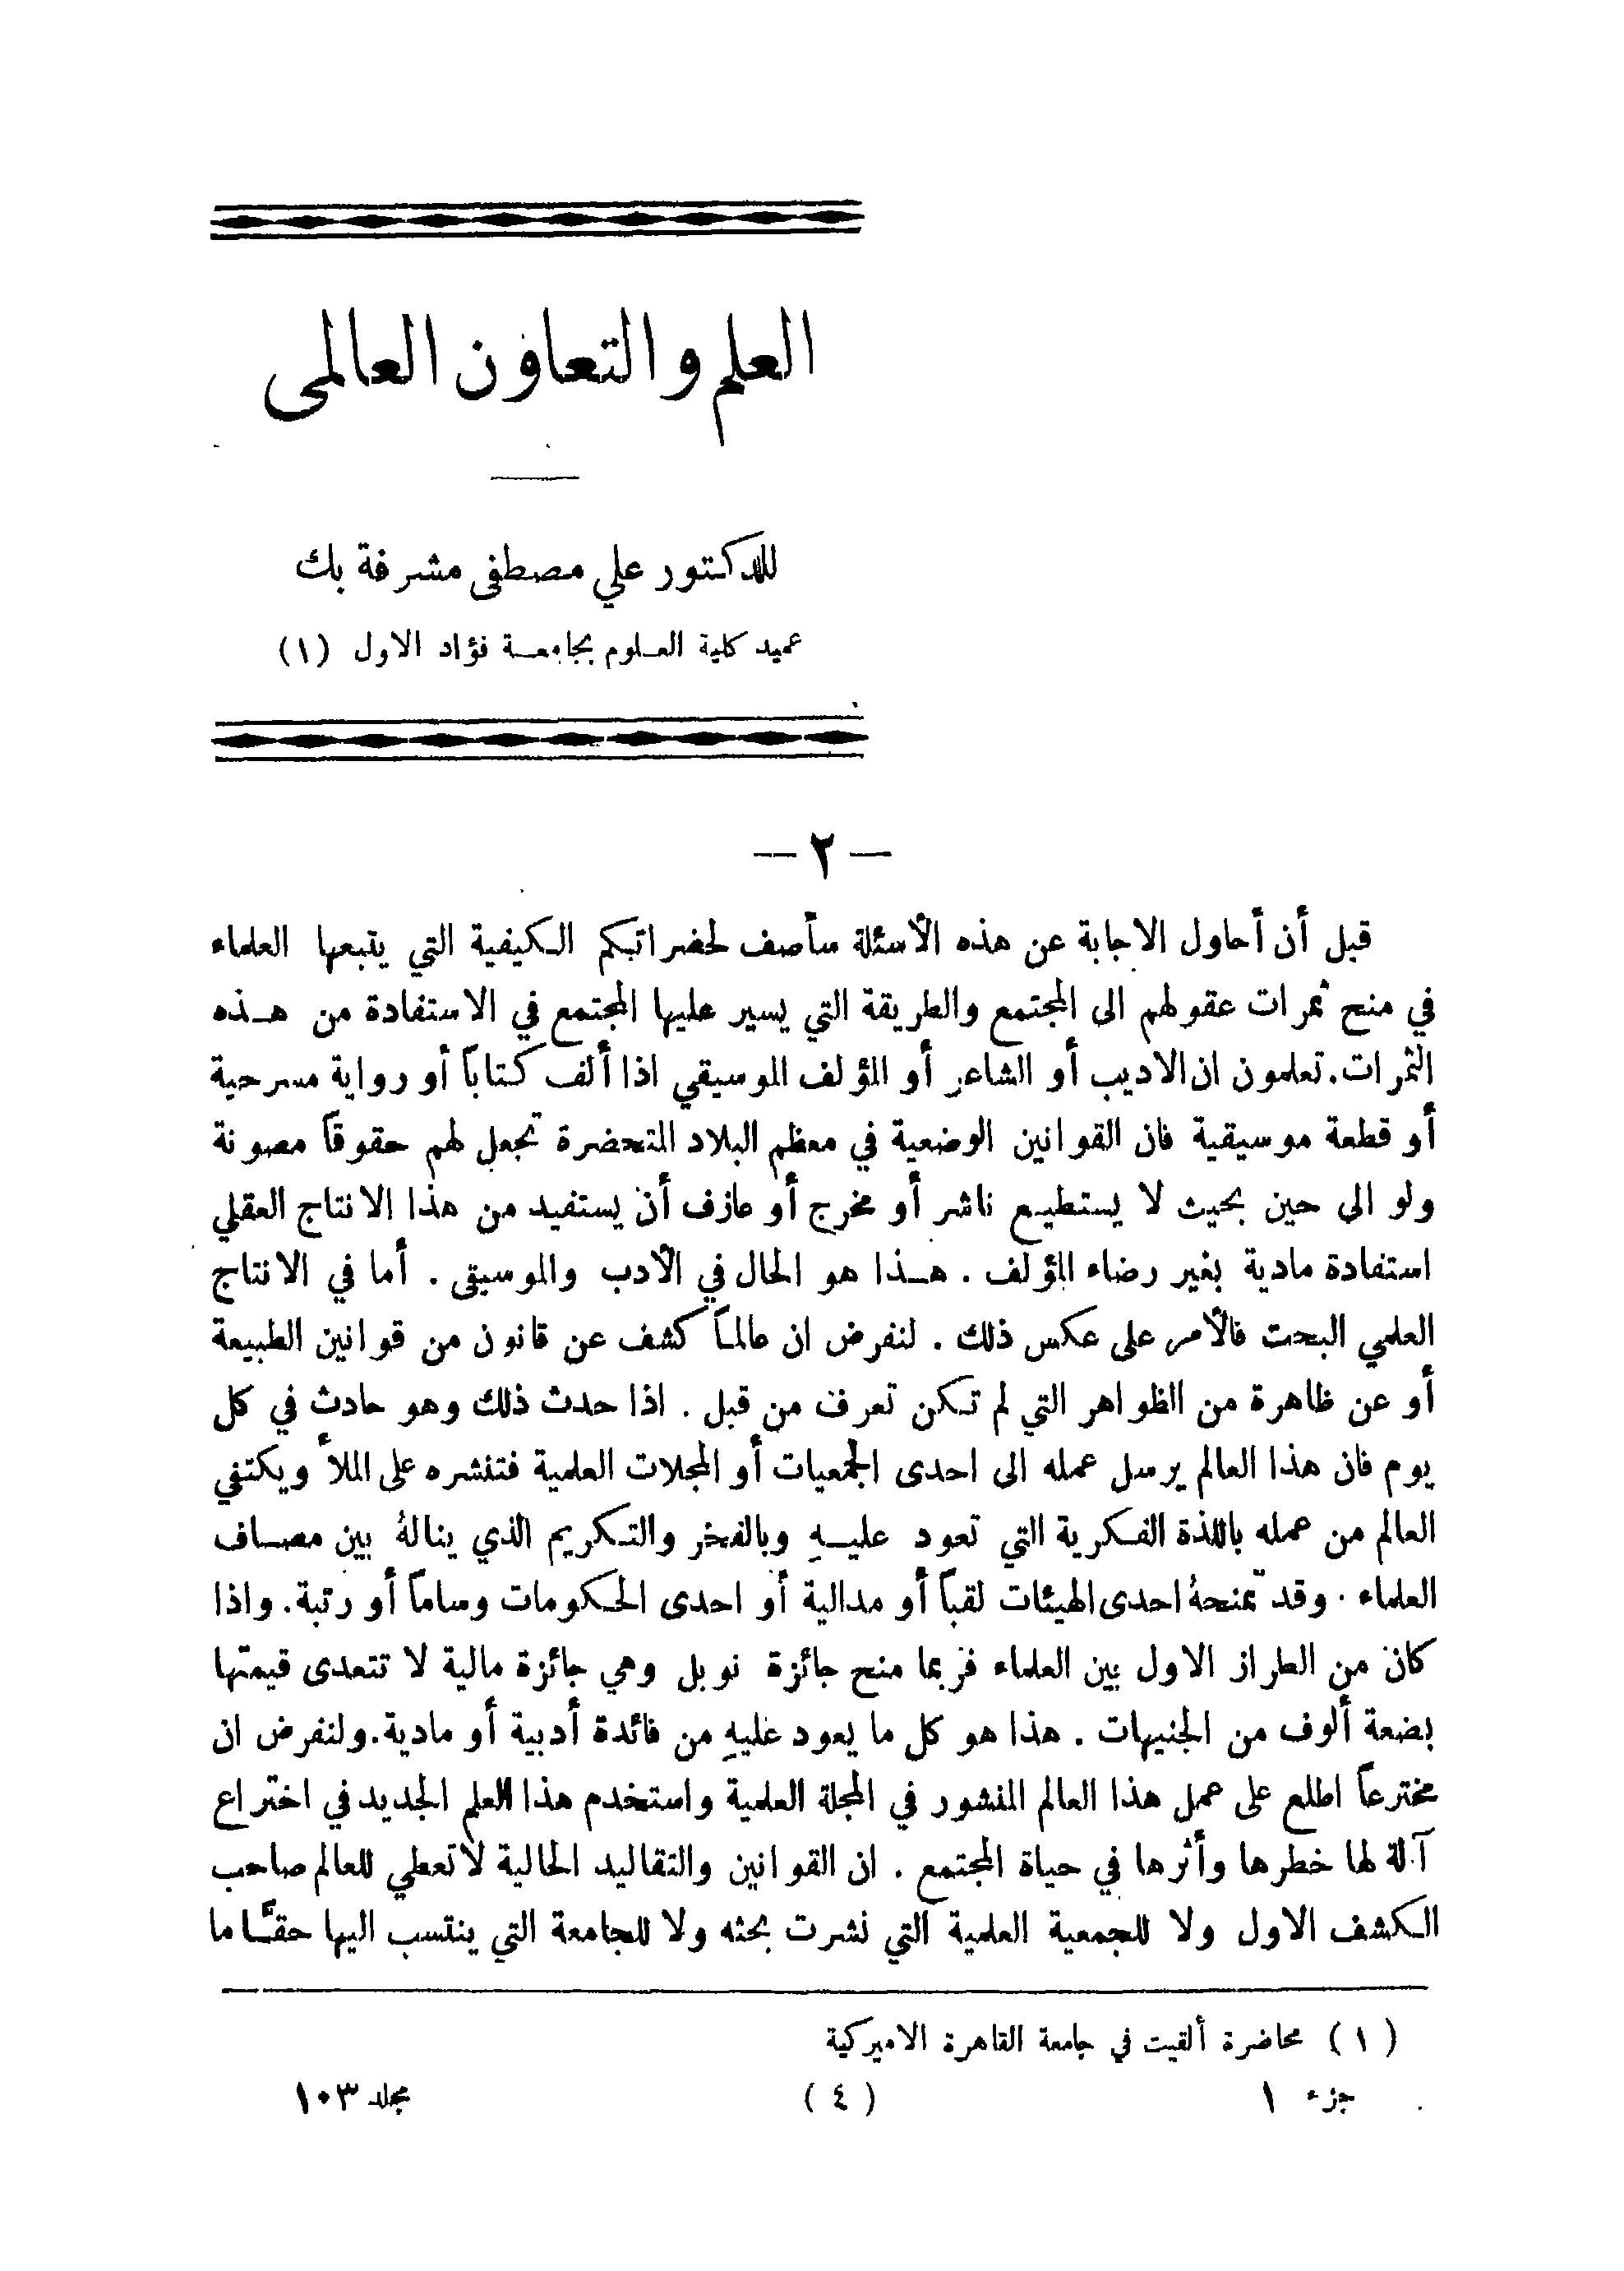 العلم والتعاون العالمى
للدكتور علي مصطفى مشرفة بك
عميد كلية العلوم بجامعة فؤاد الاول (١)
— ٢ —
قبل أن أحاول الاجابة عن هذه الأسئلة سأصف لحضراتكم الكيفية التي يتبعها العلماء
في منح ثمرات عقولهم الى المجتمع والطريقة التي يسير عليها المجتمع في الاستفادة من هذه
الثمرات. تعلمون ان الاديب أو الشاعر أو المؤلف الموسيقي اذا ألف كتاباً أو رواية مسرحية
أو قطعة موسيقية فان القوانين الوضعية في معظم البلاد المتحضرة تجعل لهم حقوقاً مصونة
ولو الى حين بحيث لا يستطيع ناشر أو مخرج أو عازف أن يستفيد من هذا الانتاج العقلي
استفادة مادية بغير رضاء المؤلف . هذا هو الحال في الأدب والموسيقى . أما في الانتاج
العلمي البحت فالأمر على عكس ذلك . لنفرض ان عالماً كشف عن قانون من قوانين الطبيعة
أو عن ظاهرة من الظواهر التي لم تكن تعرف من قبل . اذا حدث ذلك وهو حادث في كل
يوم فان هذا العالم يرسل عمله الى احدى الجمعيات أو المجلات العلمية فتنشره على الملأ ويكتفي
العالم من عمله باللذة الفكرية التي تعود عليهِ وبالفخر والتكريم الذي ينالهُ بين مصاف
العلماء . وقد تمنحهُ احدى الهيئات لقباً أو مدالية أو احدى الحكومات وساماً أو رتبة. واذا
كان من الطراز الاول بين العلماء فربما منح جائزة نوبل وهي جائزة مالية لا تتعدى قيمتها
بضعة ألوف من الجنيهات . هذا هو كل ما يعود عليهِ من فائدة أدبية أو مادية. ولنفرض ان
مخترعاً اطلع على عمل هذا العالم المنشور في المجلة العلمية واستخدم هذا العلم الجديد في اختراع
آلة لها خطرها وأثرها في حياة المجتمع . ان القوانين والتقاليد الحالية لا تعطي للعالم صاحب
الكشف الاول ولا للجمعية العلمية التي نشرت بحثه ولا للجامعة التي ينتسب اليها حقًّا ما
(١) محاضرة ألقيت في جامعة القاهرة الاميركية
جزء ١ (٤) مجلد ١٠٣